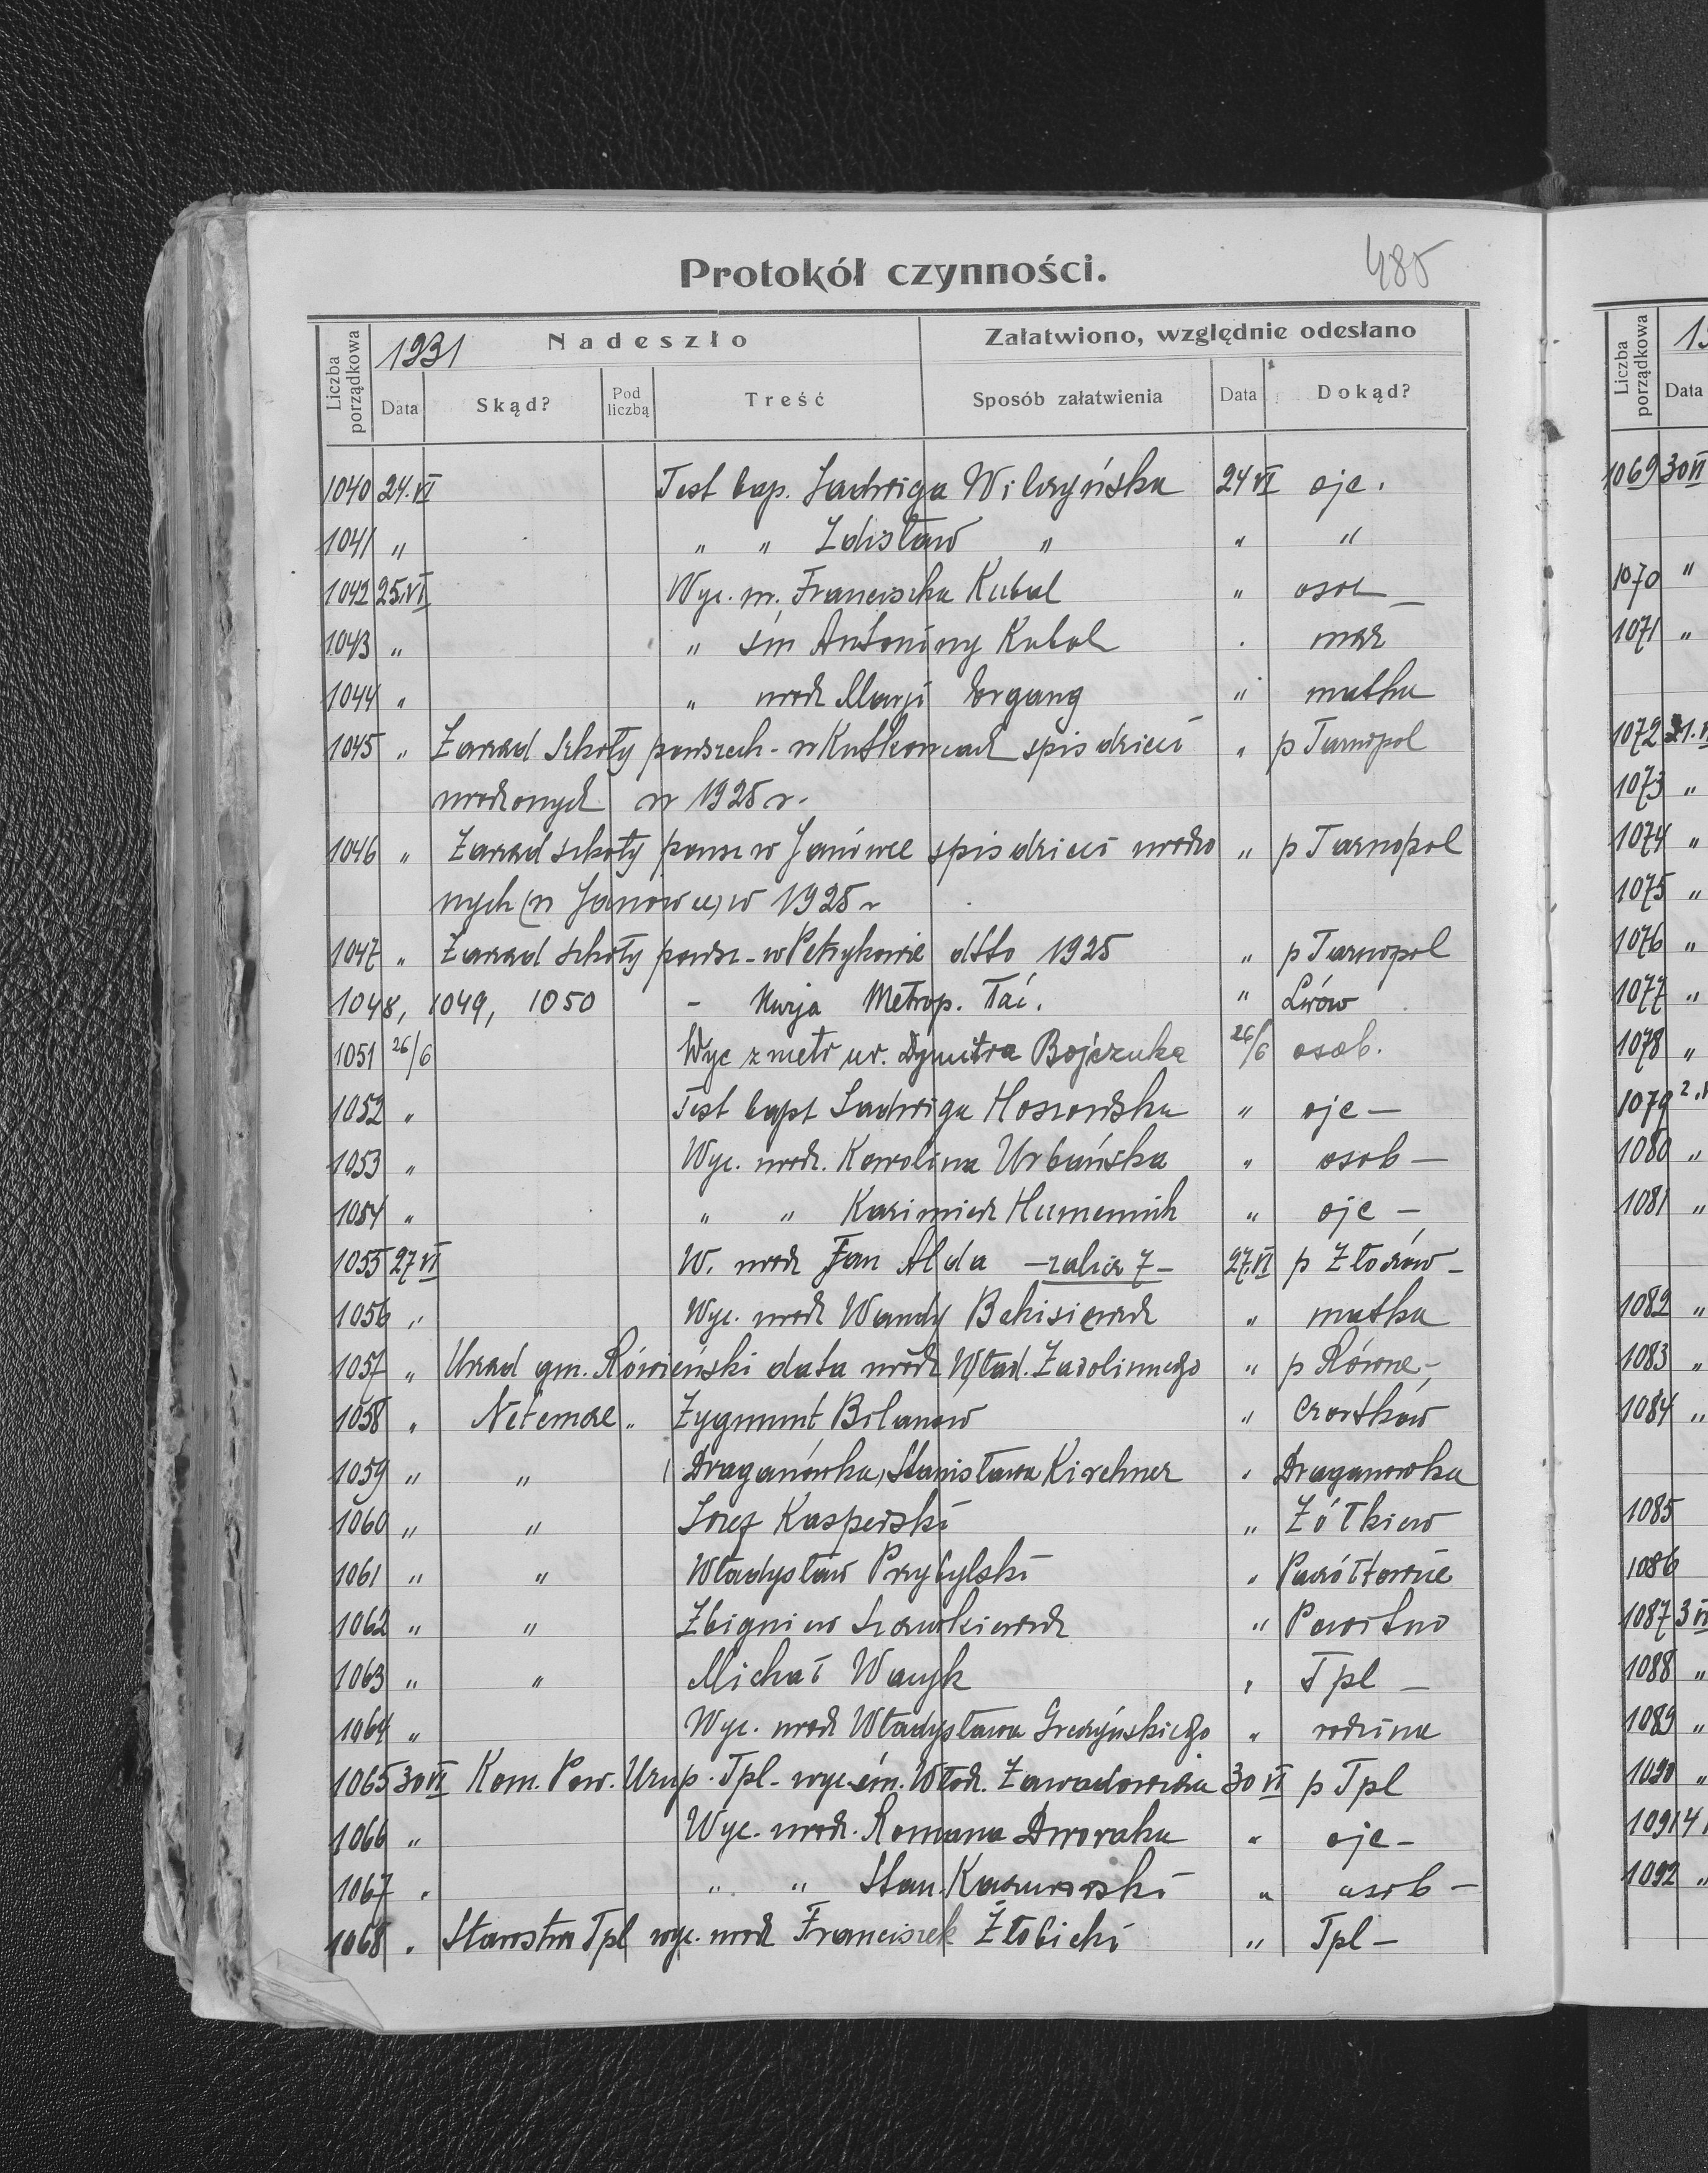 Protokół czynności. 485
Liczba porządkowa 1931 Nadeszło Załatwiono, względnie odesłano
Data Skąd? Pod liczbą Treść Sposób załatwienia Data Dokąd?
1040 24.VI Test bap. Jadwiga Wilczyńska 24 VI ojc.
1041 " " " Zdisław " " "
1042 25.VI Wyc. m. Franciszka Kubal " osob —
1043 " " śm Antoniny Kubal . mąż
1044 " " urodz Marji " matka
1045 " Zarząd Szkoły powszech - w Kutkowcach spis dzieci " p Tarnopol
urodzonych w 1925 r.
1046 " Zarząd szkoły powsz w Janówce spis dzieci urodzo " p Tarnopol
nych (w Janowce) w 1925 r
1047 " Zarząd szkoły powsz - w Petrykowie dtto 1925 " p Tarnopol
1048, 1049, 1050 - Kurja Metrop. łać. " Lwów
1051 26/6 Wyc z metr ur. Dymitra Bojczuka 26/6 osob.
1052 " Test bapt Jadwiga Hoszowska " ojc —
1053 " Wyc. urodz. Karolina Urbańska " osob —
1054 " " " Kazimierz Humennik " ojc —
1055 27 VI W. urodz Jan Alda — zalicz 7 — 27.VI p Złoczów —
1056 " Wyc. urodz Wandy " matka
1057 " Urząd gm. Rówieński data urodz Wład. Zadolinnego " p Równe —
1058 " " Zygmunt Bilanow " Czortków
1059 " " Draganówka, Stanisława Kirchner " Draganowka
1060 " " Józef Kasperski " Żółkiew
1061 " " Władysław Przybylski "
1062 " " Zbigniew "
1063 " " Michał Wacyk " Tpl —
1064 " Wyc. urodz Władysława Greczyńskiego " rodzina
1065 30 VI Kom. Pow. Uzup. Tpl - wyc śm. Włodz. Zawadowicza 30 VI p Tpl
1066 " Wyc. urodz. Romana Dworaka " ojc —
1067 " " " Stan. " osob —
1068 " Starostwo Tpl wyc. urodz Franciszek Żłobicki " Tpl —
Liczba porządkowa 19
Data
1069 30 VI
1070 "
1071 "
1072
1073 "
1074 "
1075 "
1076 "
1077 "
1078 "
1079
1080 "
1081 "
1082 "
1083 "
1084 "
1085
1086
1087
1088 "
1089 "
1090 "
1091
1092 "